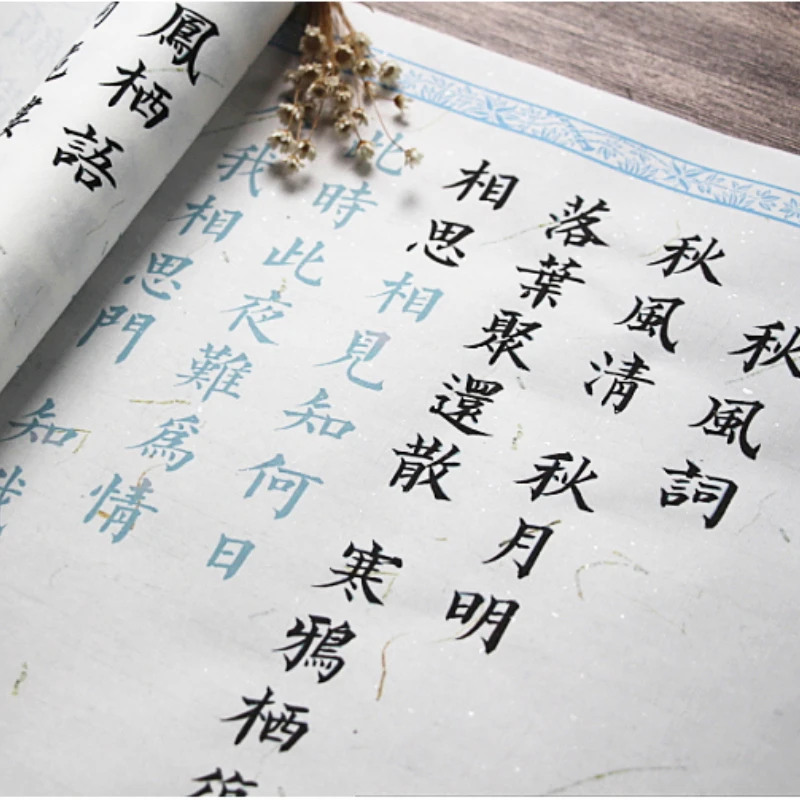 秋風詞
秋風清 秋月明
落葉聚還散 寒鴉栖
相思相見知何日
此時此夜難爲情
我相思門 知我
鳳栖語